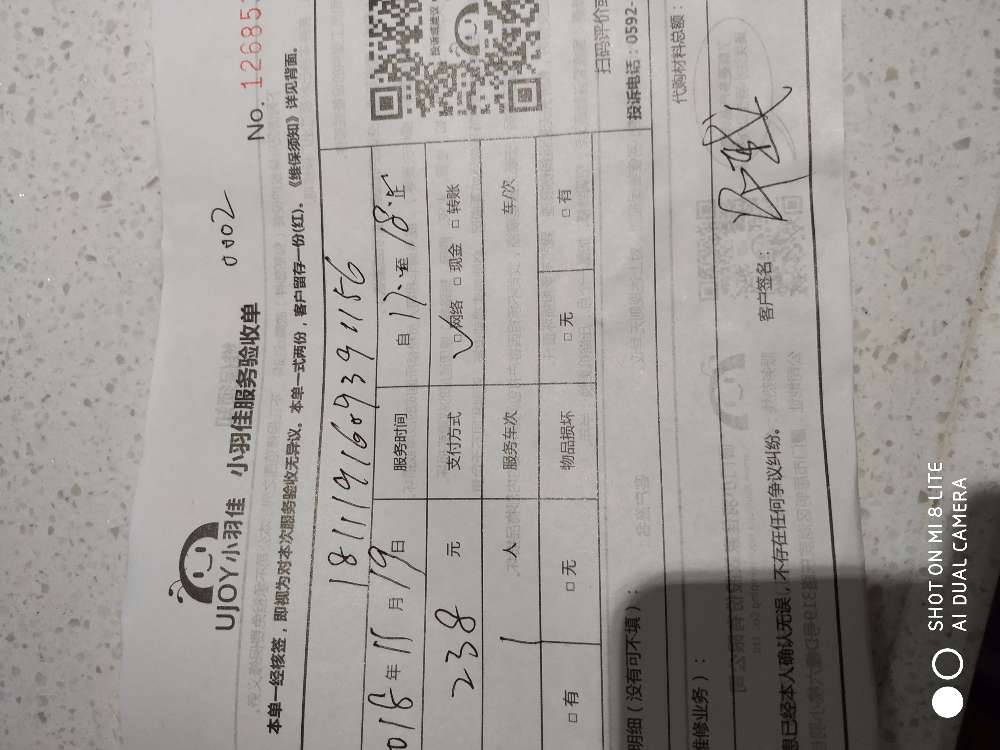 UJOY小羽佳 小羽佳服务验收单
0002
No. 12685
本单一经核签，即视为对本次服务验收无异议。本单一式两份，客户留存一份(红)。《维保须知》详见背面。
018年11月19日
服务时间 自17:至18:止
238元
支付方式 ☑网络 □现金 □转账
1人
服务车次 车/次
□有 □无
物品损坏 □无 □有
投诉或建议
扫码评价或
投诉电话：0592-
明细（没有可不填）：
代购材料总额：
维修业务）：
息已经本人确认无误，不存在任何争议纠纷。
客户签名：
SHOT ON MI 8 LITE
AI DUAL CAMERA